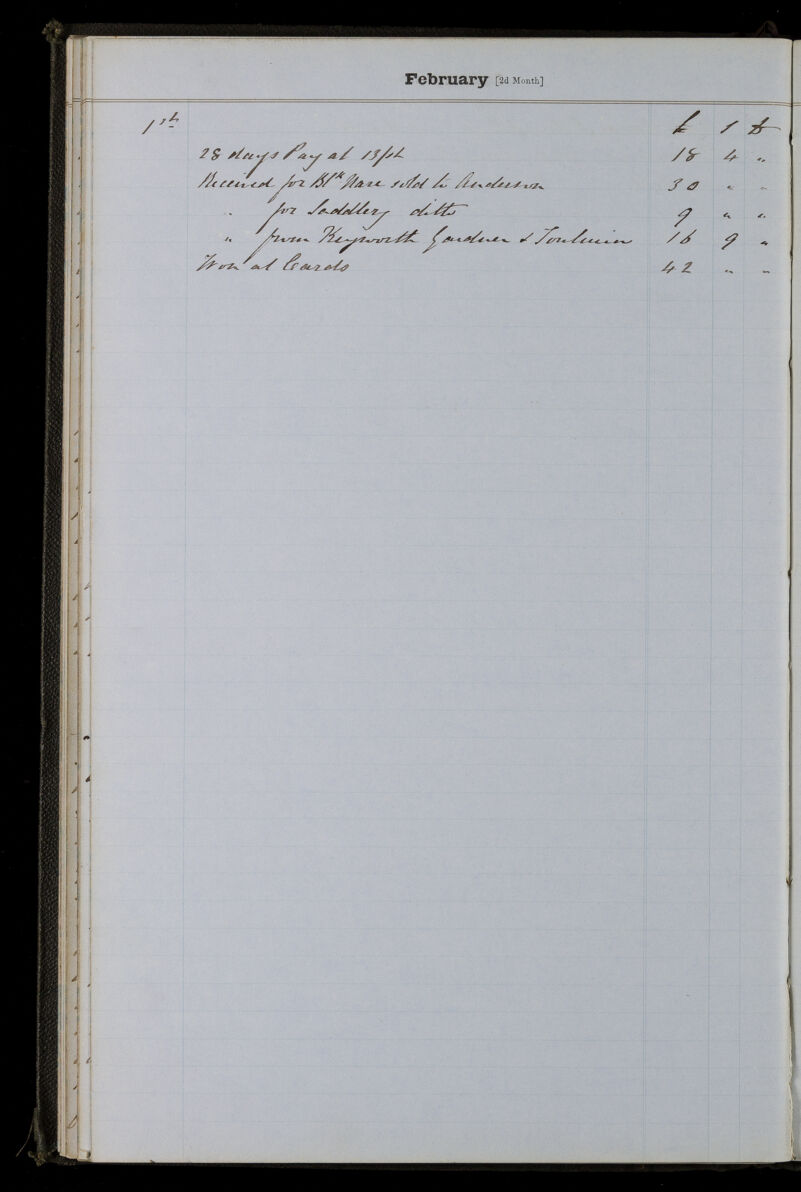 February [2d Month]
1st £ s d
28 days Pay at 13/ph 18 4 "
Received for Blk Mare sold to Anderson 30 " "
" for Saddlery ditto 9 " "
" from Keyworth Gardner & Toulmin 16 9 "
Won at Cards 42 " "